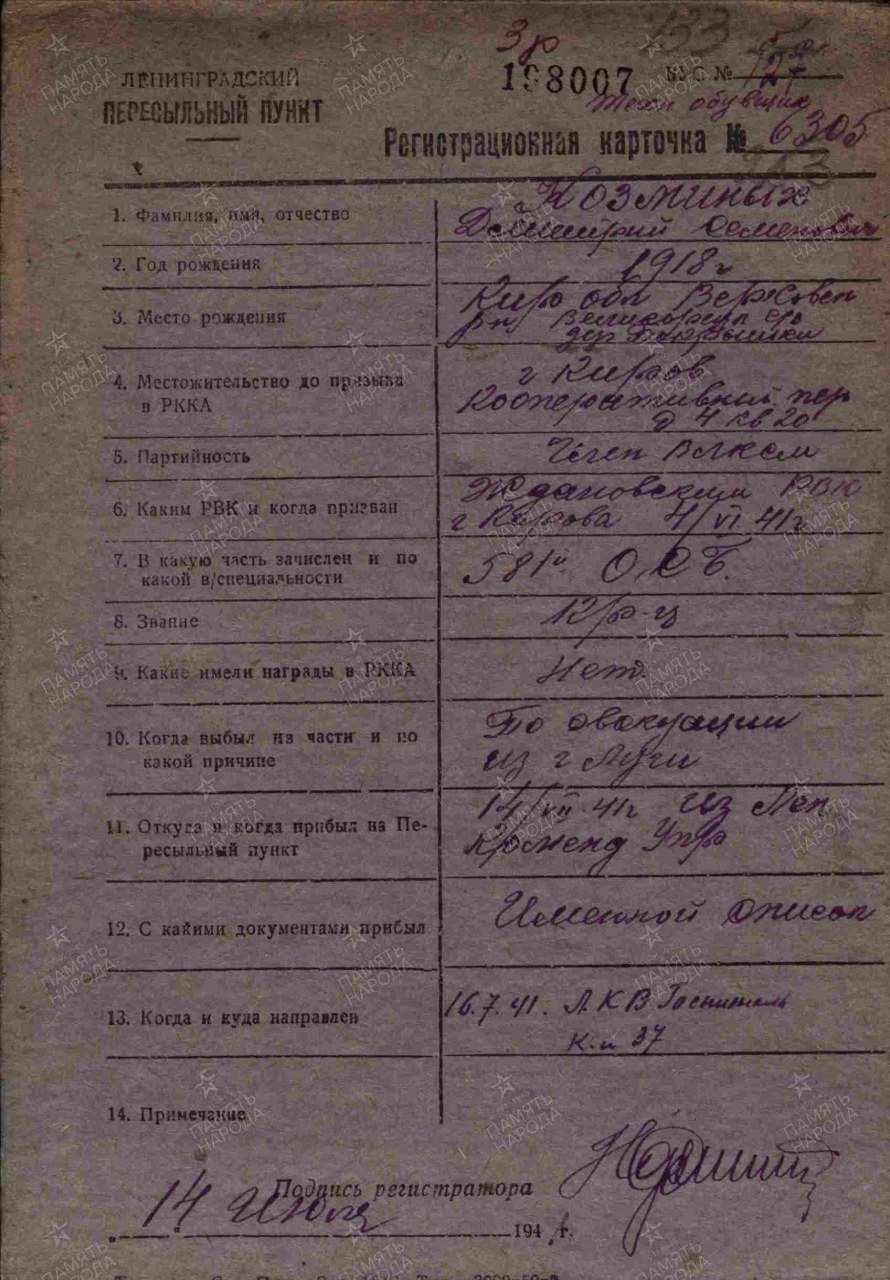 3р
133
ЛЕНИНГРАДСКИЙ
ПЕРЕСЫЛЬНЫЙ ПУНКТ
198007 ВУС № 127
техн обувщик
Регистрационная карточка № 6305
1. Фамилия, имя, отчество
Козминых
Дмитрий Семенович
2. Год рождения
1918 г
3. Место рождения
Киров обл Верховен
рн Великорецк с/с
дер
4. Местожительство до призыва
в РККА
г Киров
Кооперативный пер
д 4 кв 20
5. Партийность
Член ВЛКСМ
6. Каким РВК и когда призван
Ждановским РВК
г Кирова 4/VI 41 г
7. В какую часть зачислен и по
какой в/специальности
581й О.С.Б.
8. Звание
Кр-ц
9. Какие имели награды в РККА
Нет
10. Когда выбыл из части и по
какой причине
По эвакуации
из г Луги
11. Откуда и когда прибыл на Пе-
ресыльный пункт
14/VII-41г из Лен
Коменд Упр
12. С какими документами прибыл
Именной список
13. Когда и куда направлен
16.7.41. ЛКВ Госпиталь
к.и 37
14. Примечание
Подпись регистратора
14 Июля 1941 г.
ПАМЯТЬ
НАРОДА